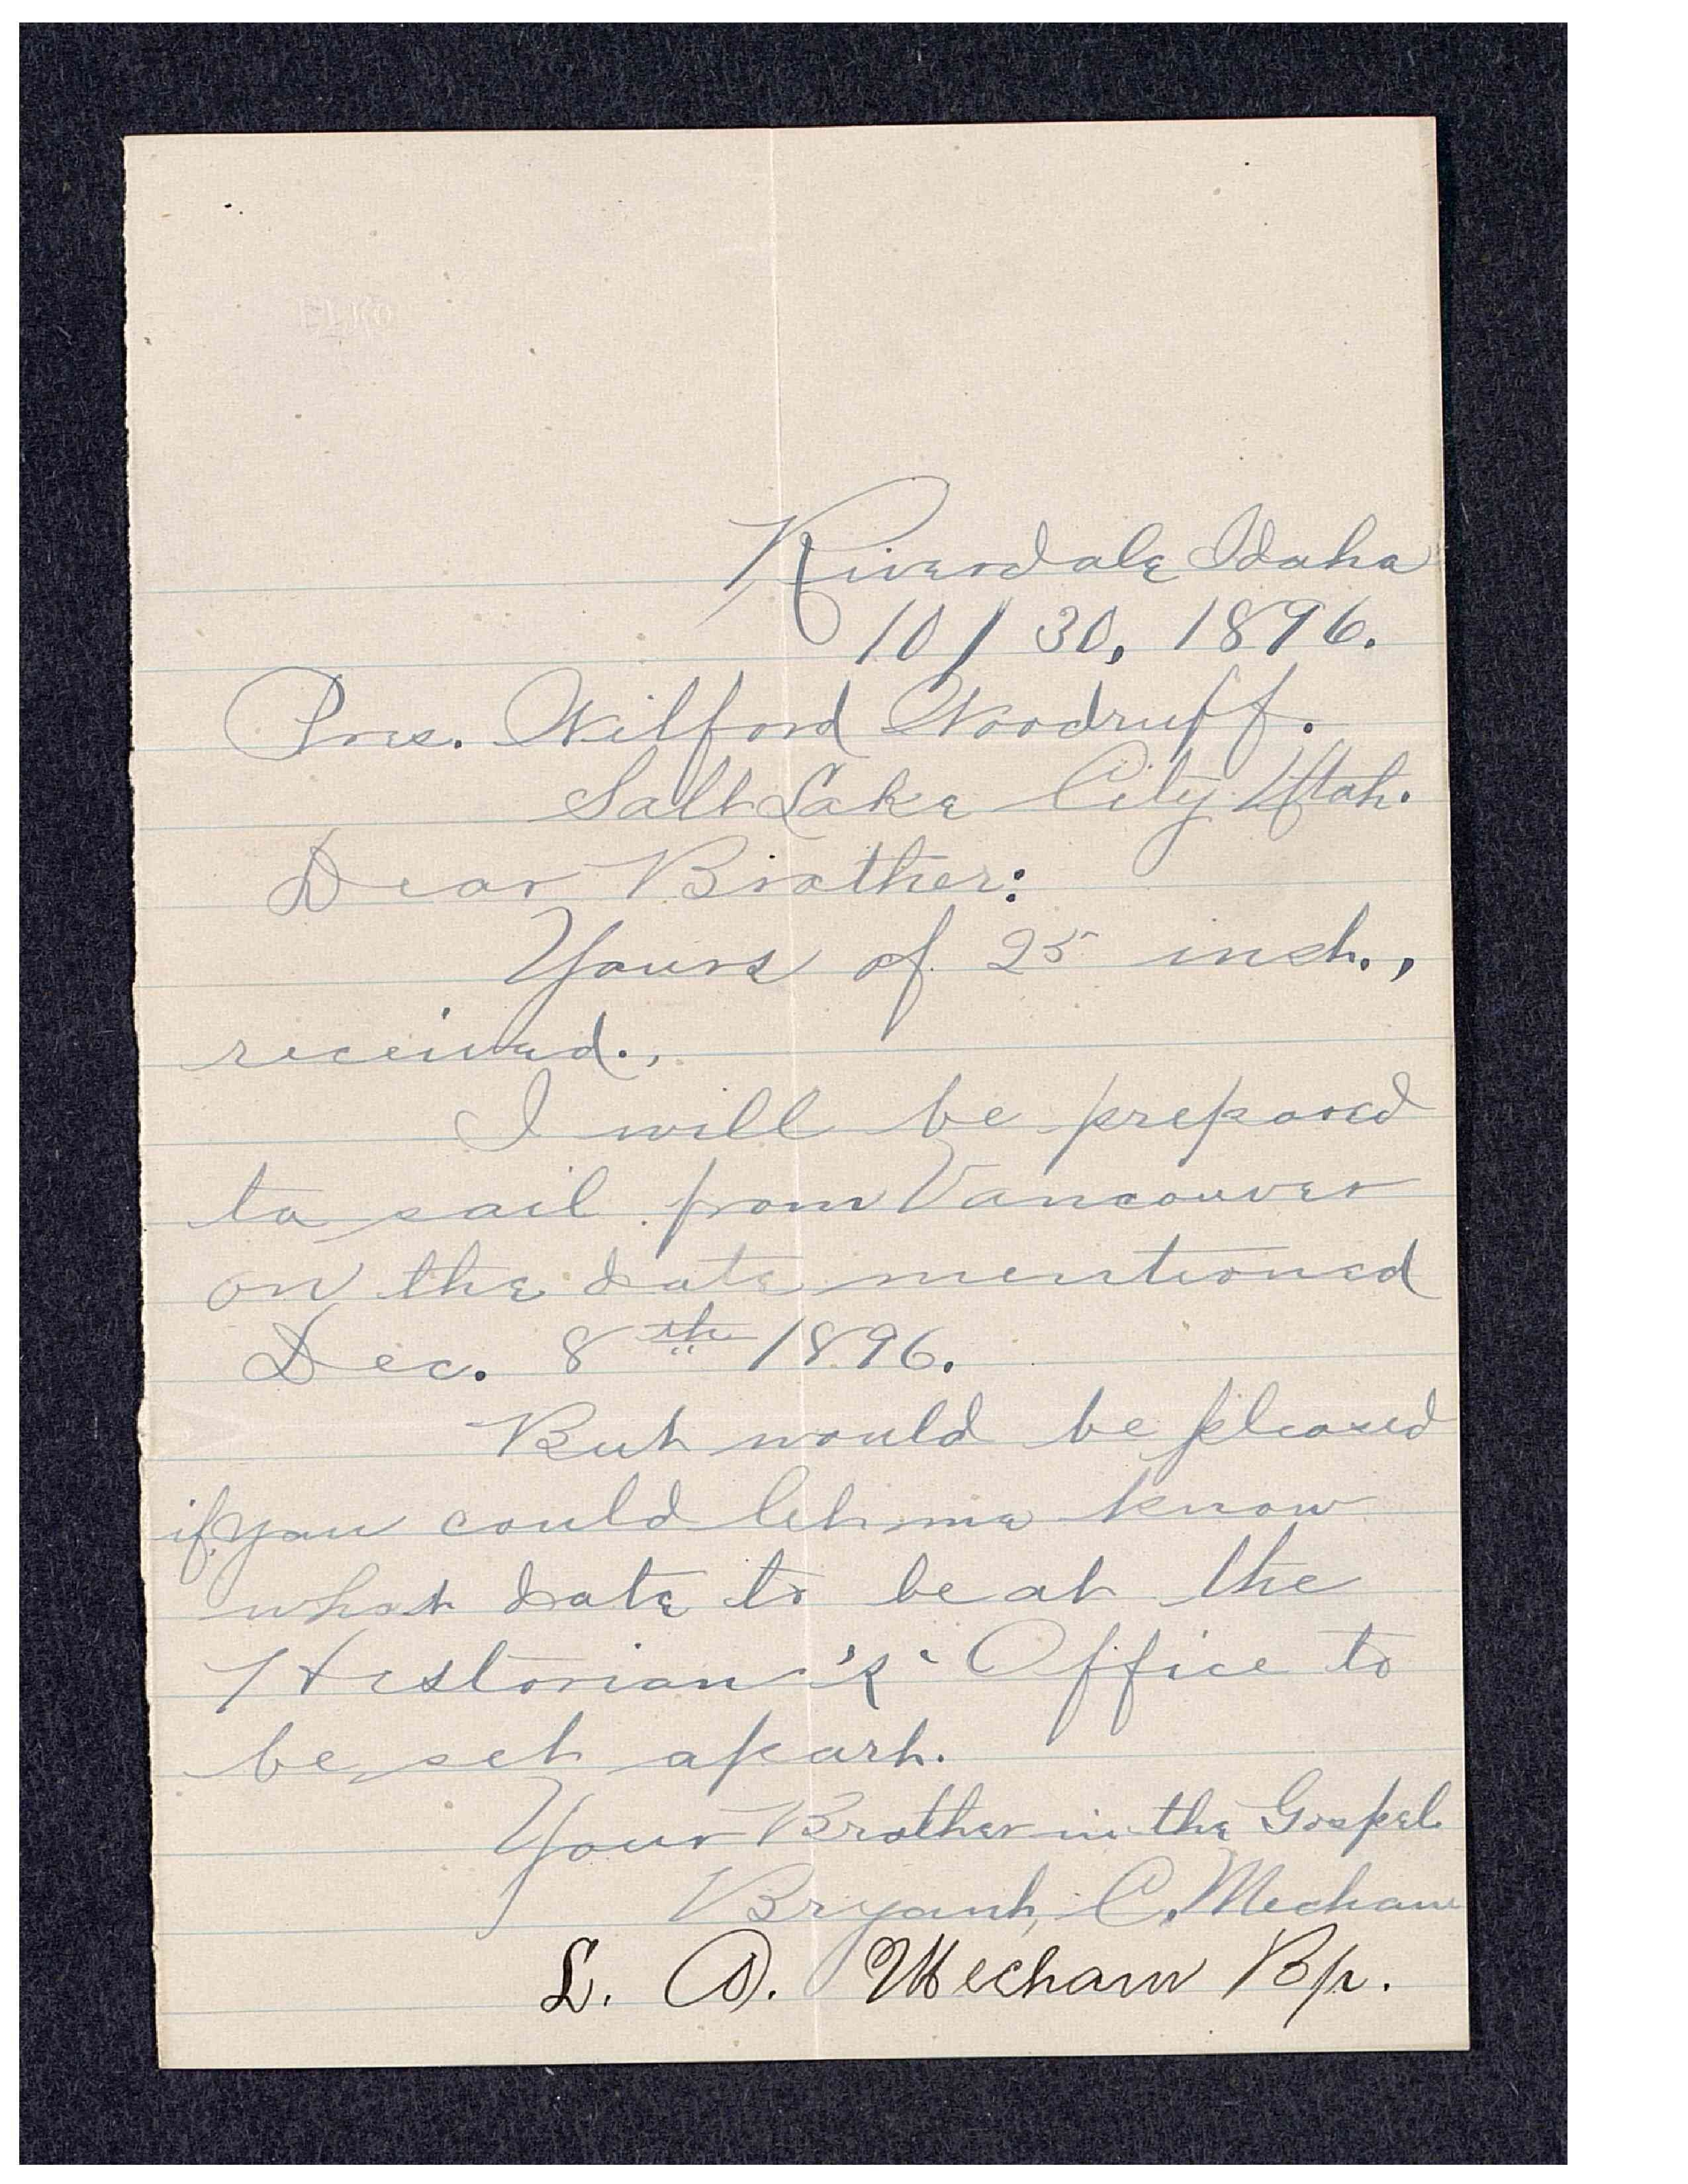 ELKO
Riverdale Idaho
10/30, 1896.
Pres. Wilford Woodruff.
Salt Lake City Utah.
Dear Brother:
Yours of 25 inst.,
received.,
I will be prepared
to sail from Vancouver
on the date mentioned
Dec. 8th 1896.
But would be pleased
if you could let me know
what date to be at the
Historian's Office to
be set apart.
Your Brother in the Gospel
Bryant, C. Mecham
L. D. Mecham Bp.